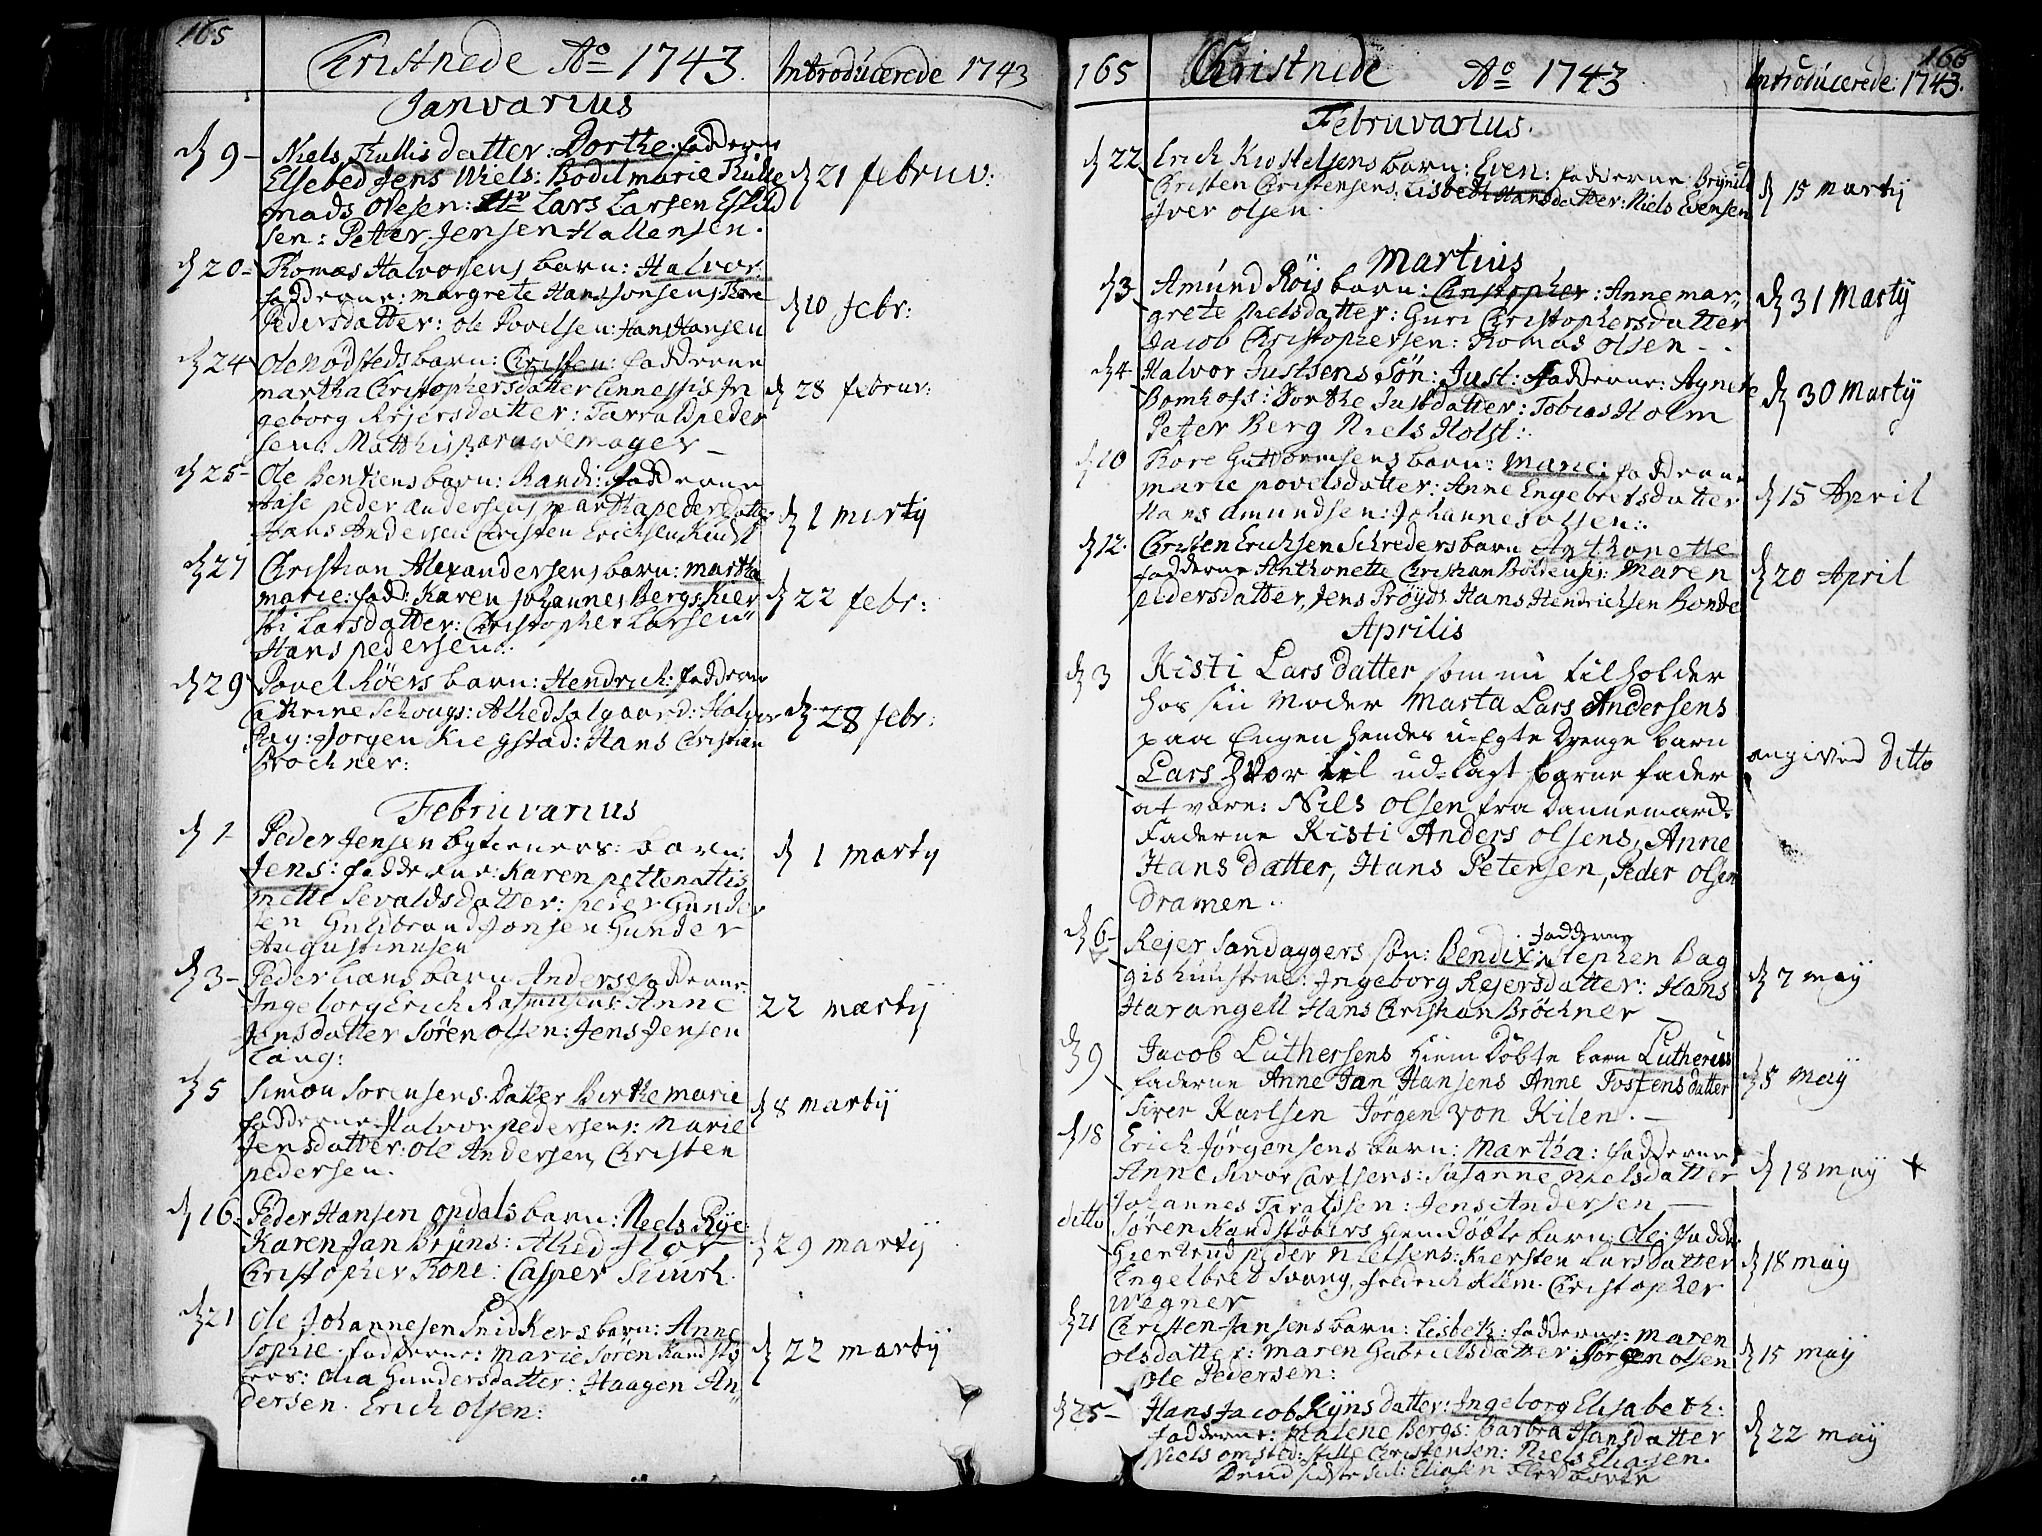 165
Christnede Ao 1743. Introducerede 1743
Janvarius
9 - Niels Kullis datter: Dorthe: fadderne
Elsebed Jens Niels: Bodilmarie Kulle
mads olesen: Lars Larsen Eskild
sen: Peter Jensen Hallensen.
21 februv:
20 - Thomas Halvorsens barn: Halvor
fadderne: margrete Hans Jonsens Thore
Pedersdatter: ole Povelsen: Hans Hansen
10 febr:
24 Ole barn: Christen: fadderne
martha Christophersdatter In
geborg Rejersdatter: Tarraldpeder
sen: Matthis
28 februv:
25 - Ole Bentsens barn: Randi: fadderne
Aase peder andersens martha pedersdatter
Hans Andersen Christen Ericksen
1 marty
27 Christian Alexandersens barn: martha
marie: fadd: Karen Johannes Bergs Kier
sti Larsdatter: Christopher Larsen
Hans pedersen:.
22 febr:
29 Povel Röers barn: Hendrich: fadderne
Cathrine Schougs: Alhed Solgaard: Halvor
Juy: Jorgen Kiegstad: Hans Christian
Brockner:
28 febr:
Februvarius
1 - Peder Jensen bytieners: barn:
Jens: fadderne: Karen
mette Sevaldsdatter: peder Gunder
sen Guldbrand Jonsen Gunder
Augustinusen
1 marty
3 - Peder Lians barn Anders: fadderne
Ingeborg Erich Rasmusens: Anne
Jensdatter Sören olsen: Jens Jensen
Laug:
22 marty
5 Simon Sorensens Datter Birthemarie
fadderne Halvor pedersens: Marie
Jensdatter: ole Andersen, Christen
pedersen.
8 marty
16 Peder Hansen opdals barn: Niels Rye:
Karen Jan Bruns: Alhed Flor
Christopher Rone: Casper
29 marty
21 Ole Johannesen Snidkers barn: Anne
Sophie: fadderne: marie Sören Kandstö
bers: olia Gundersdatter: Haagen An
dersen. Erich olsen:
22 marty
165 Christnede Ao 1743 Introducerede: 1743.
166
Februvarius.
22 Erich Kiostelsens barn: Even: fadderne: Brynild
Christen Christensens: Lisbeth Hansdatter: Niels Evensen
Iver olsen.
15 marty
Martius
3 Amund Röis barn: Christopher: Anne mar
grete Nielsdatter: Guri Christophersdatter
Jacob Christophersen: Thomas olsen -
31 Marty
4 Halvor Justsens Sön: Just: fadderne: Agnete
Bomhofs: Dorthe Justdatter: Tobias Holm
Peter Berg Niels Holst:
30 Marty
10 Thore Guttormsens barn: Marie: fadderne
marie povelsdatter: Anne Engebretsdatter
Hans amundsen: Johannes olsen:
15 April
12. Christen Ericksen Schreders barn Anthonette
fadderne Anthonette Christian Maren
pedersdatter, Jens Pröyds Hans Hendrichsen Bonde
20 April
Aprilis
3 Kisti Larsdatter som nu tilholder
hos sin Moder Marta Lars Andersens
paa Engen hendes uegte Drenge barn
Lars hvor til ud-lagt barne fader
at vare: Nils olsen fra Dannemark
Faderne Kisti Anders olsens, Anne
Hans datter, Hans Petersen, Peder olsen
Dramen.
angived ditto
6 - Rejer Sandaggers sön: Bendix fadderne Stephen Bag
gis: Ingeborg Rejersdatter: Hans
Harangell Hans Christian Bröckner
7 may
9 Jacob Luthersens hiem Döbte barn Lutherus
faderne Anne Jan Hansens Anne Tostens datter
Siver Karlsen Jörgen von Kilen. -
5 may
18 Erich Jörgensens barn: Martha: fadderne
Anne Sivor Carlsens: Susanne Nielsdatter
Johannes Taraldsen: Jens Andersen -
18 may +
ditto Sören Kandstöbers hiem Döbte barn: Ole: fadde
Giertrud peder nielsens: Kiersten Larsdatter
Engelbret Svang, fredrich Klem Christopher
Wegner
18 may
21 Christen Jansens barn: Lisbeth: fadderne: Maren
olsdatter: Maren Gabrielsdatter: Jörgen olsen
ole Pedersen:
15 may
25 - Hans Jacob Ryns datter: Ingeborg Elisabeth:
fadderne: Malene Bergs: Barbra Hansdatter
Niels omsted: Christensen: Niels Eliasen.
22 may